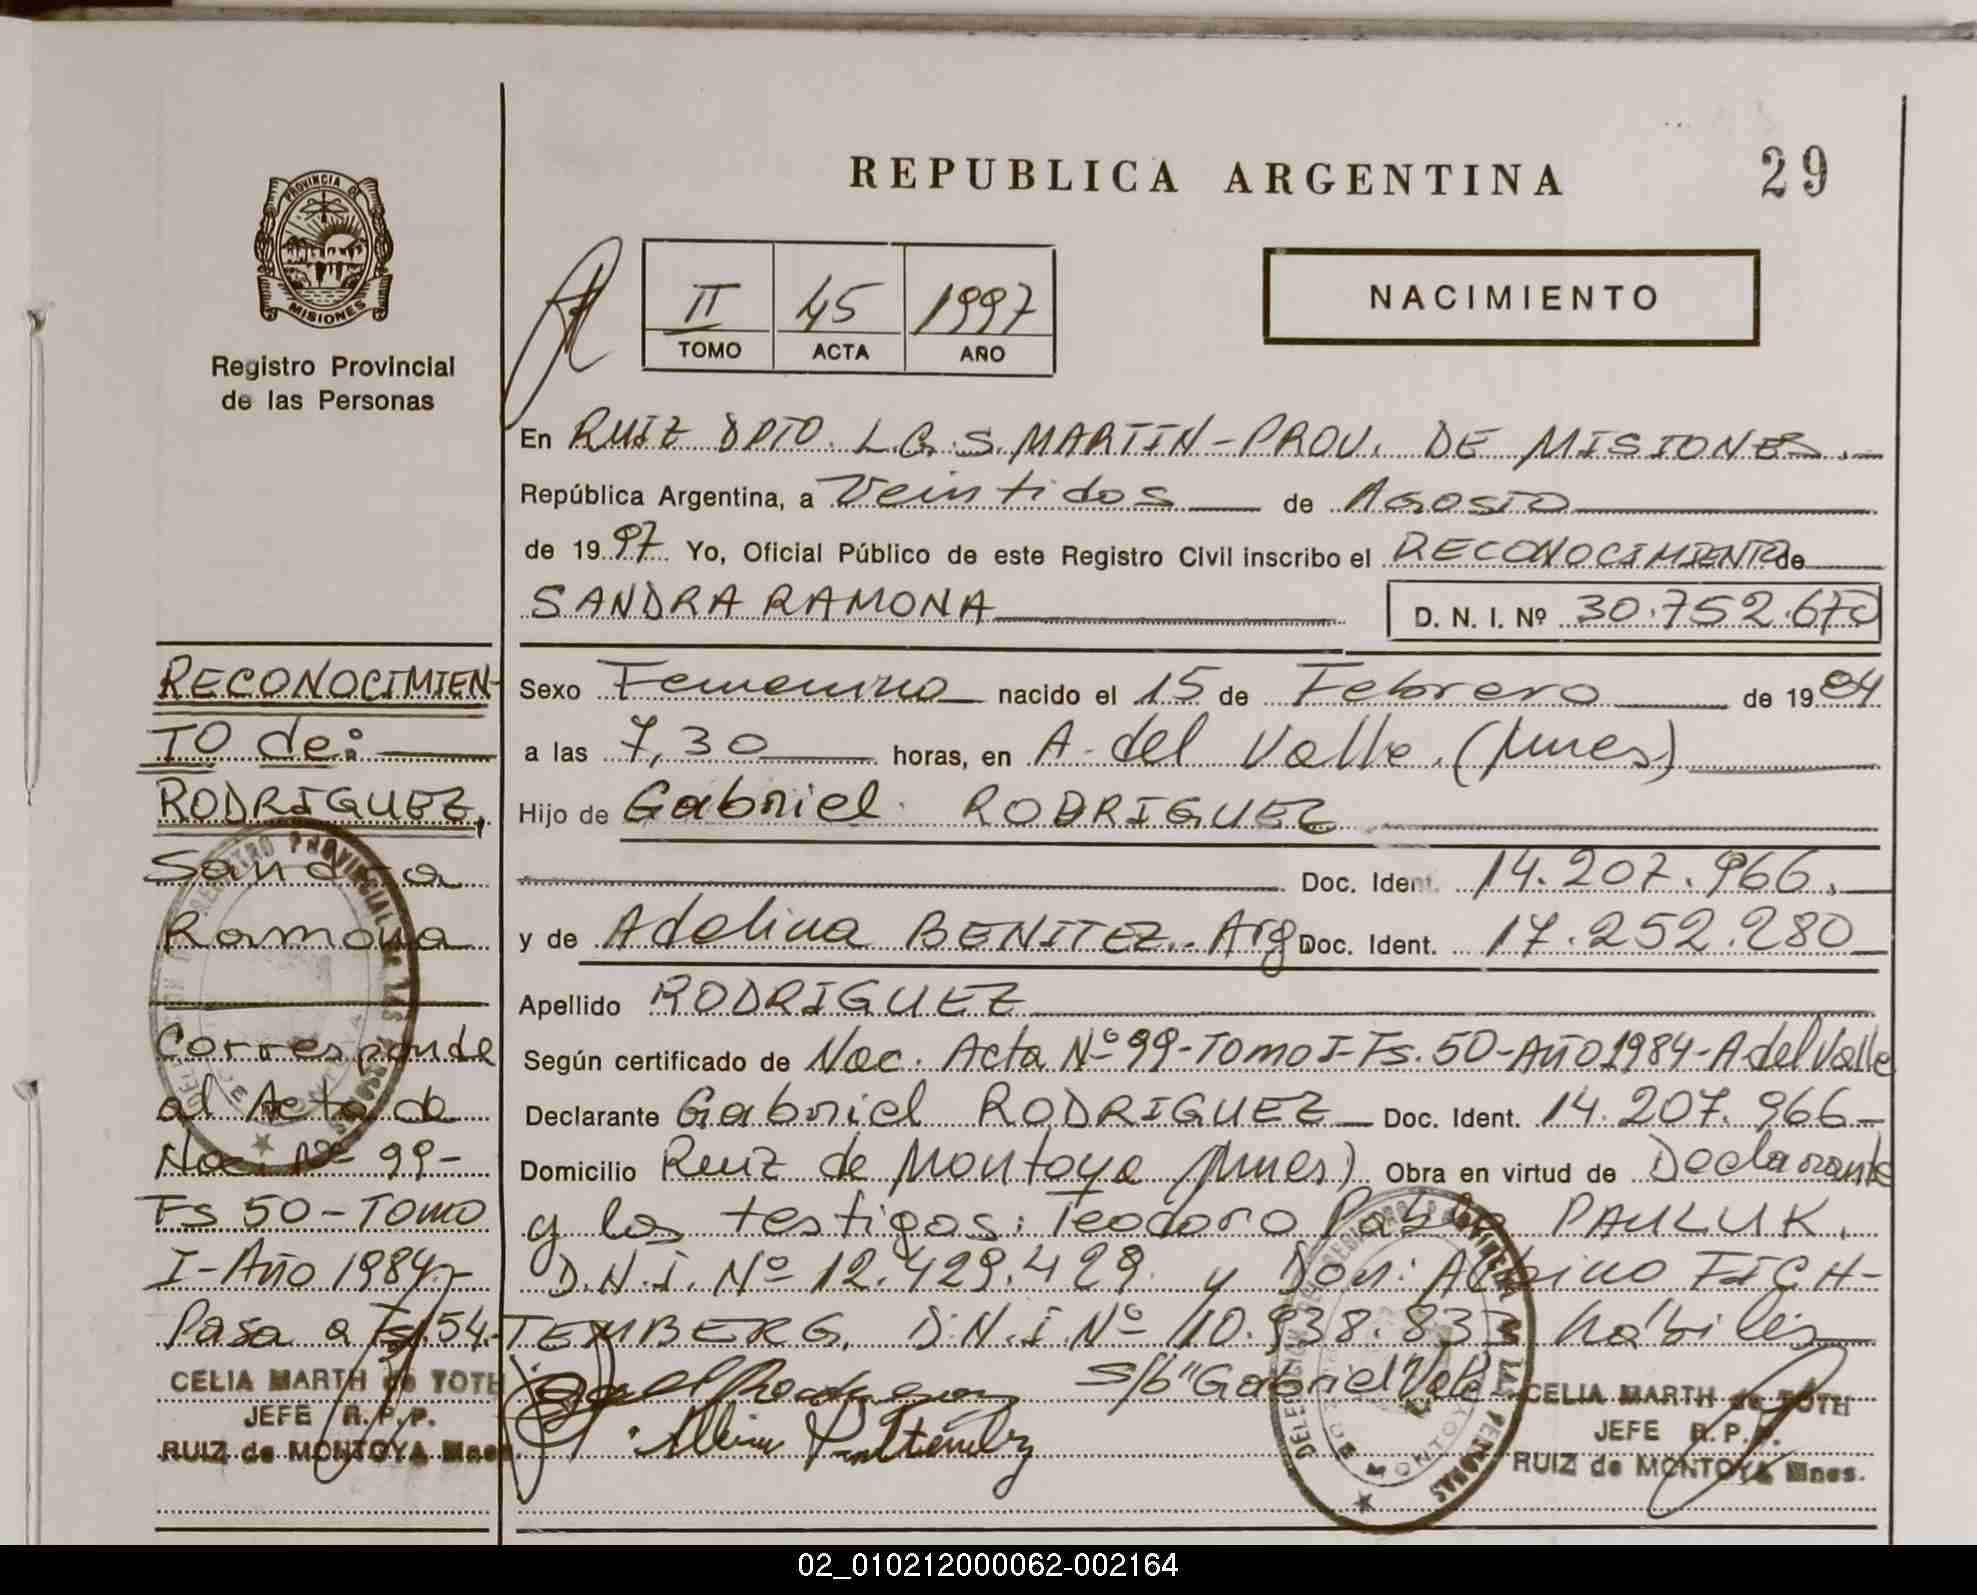 REPUBLICA ARGENTINA
29
PROVINCIA DE
MISIONES
Registro Provincial
de las Personas
II 45 1997
TOMO ACTA AÑO
NACIMIENTO
En RUIZ DPTO. L.G.S. MARTIN - PROV. DE MISIONES.-
República Argentina, a Veintidos de Agosto
de 1997 Yo, Oficial Público de este Registro Civil inscribo el RECONOCIMIENTO de
SANDRA RAMONA D. N. I. Nº 30.752.670
Sexo Femenino nacido el 15 de Febrero de 1984
a las 7,30 horas, en A. del Valle. (Mnes)
Hijo de Gabriel RODRIGUEZ
Doc. Ident. 14.207.966.
y de Adelina BENITEZ.. Arg Doc. Ident. 17.252.280
Apellido RODRIGUEZ
Según certificado de Nac. Acta Nº 99-Tomo I-Fs. 50-Año 1984-A del Valle
Declarante Gabriel RODRIGUEZ Doc. Ident. 14.207.966-
Domicilio Ruiz de Montoya (Mnes) Obra en virtud de Declarante
y los testigos: Teodoro Pablo PAULUK.
D.N.I. Nº 12.429.429. y Don: Albino FICH-
TEMBERG. D.N.I. Nº 10.938.837 hábiles
S/b "Gabriel Vale
CELIA MARTH de TOTH
JEFE R.P.P.
RUIZ de MONTOYA Mnes.
RECONOCIMIEN-
TO de:
RODRIGUEZ,
Sandra
Ramona
Corresponde
al Acta de
Nac. Nº 99-
Fs 50-Tomo
I-Año 1984.-
Pasa a Fs. 54.-
CELIA MARTH de TOTH
JEFE R.P.P.
RUIZ de MONTOYA Mnes.
02_010212000062-002164